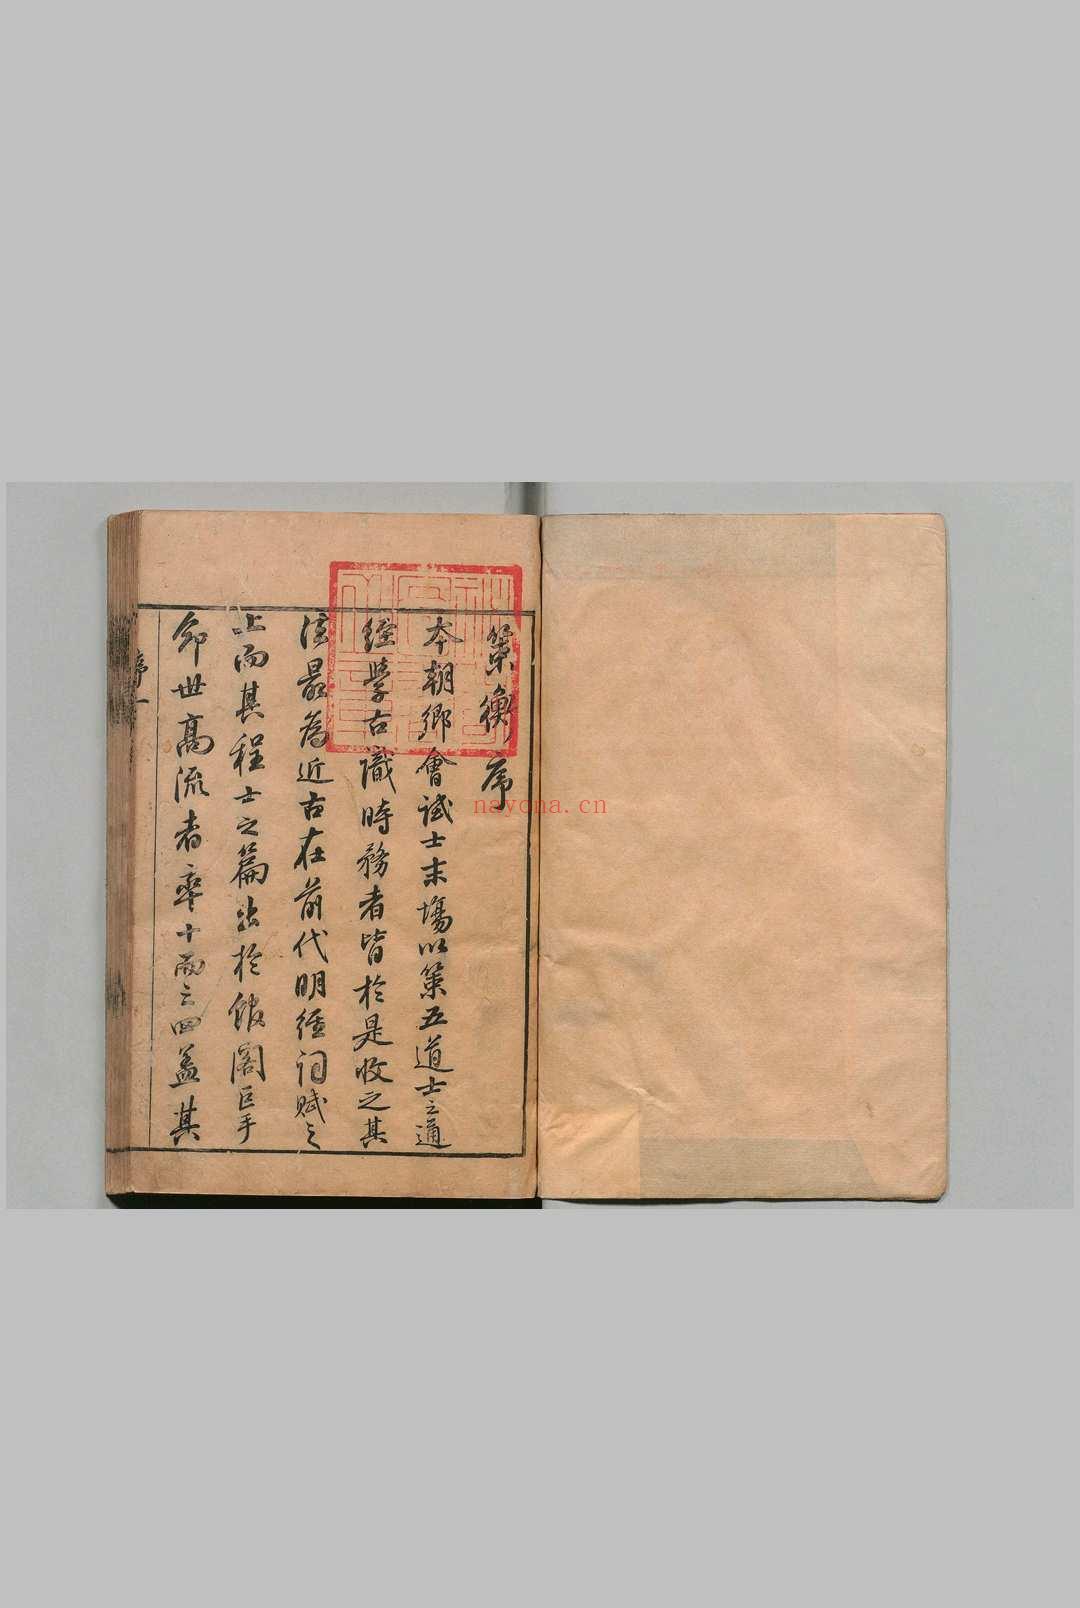 策衡序
本朝鄉會試士末塲以策五道士之通
經學古識時務者皆於是收之其
法最為近古在前代明經詞賦之
上而其程士之篇出於館閣巨手
命世高流者率十而三四葢其
序一
nayona.cn